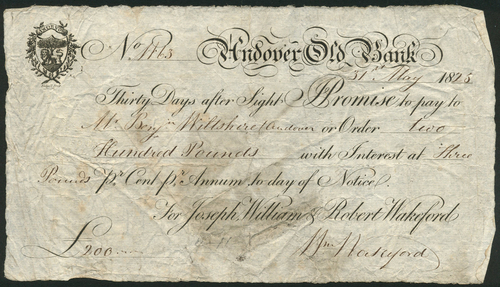 No. Andover Old Bank
31st May 1825
Thirty Days after Sight I Promise to pay to
Mr Benjn Wiltshire Andover or Order Two
Hundred Pounds with Interest at Three
Pounds pr. Cent pr. Annum to day of Notice.
For Joseph William & Robert Wakeford
£200 Wm Wakeford